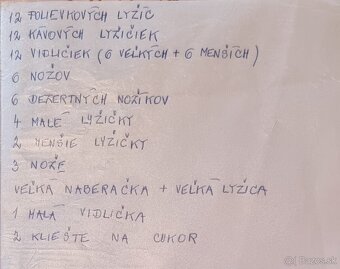 12 POLIEVKOVÝCH LYŽÍC
12 KÁVOVÝCH LYŽIČIEK
12 VIDLIČIEK (6 VEĽKÝCH + 6 MENŠÍCH)
6 NOŽOV
6 DEZERTNÝCH NOŽÍKOV
4 MALÉ LYŽIČKY
2 MENŠIE LYŽIČKY
3 NOŽE
VEĽKÁ NABERAČKA + VEĽKÁ LYŽICA
1 MALÁ VIDLIČKA
2 KLIEŠTE NA CUKOR
Bazos.sk